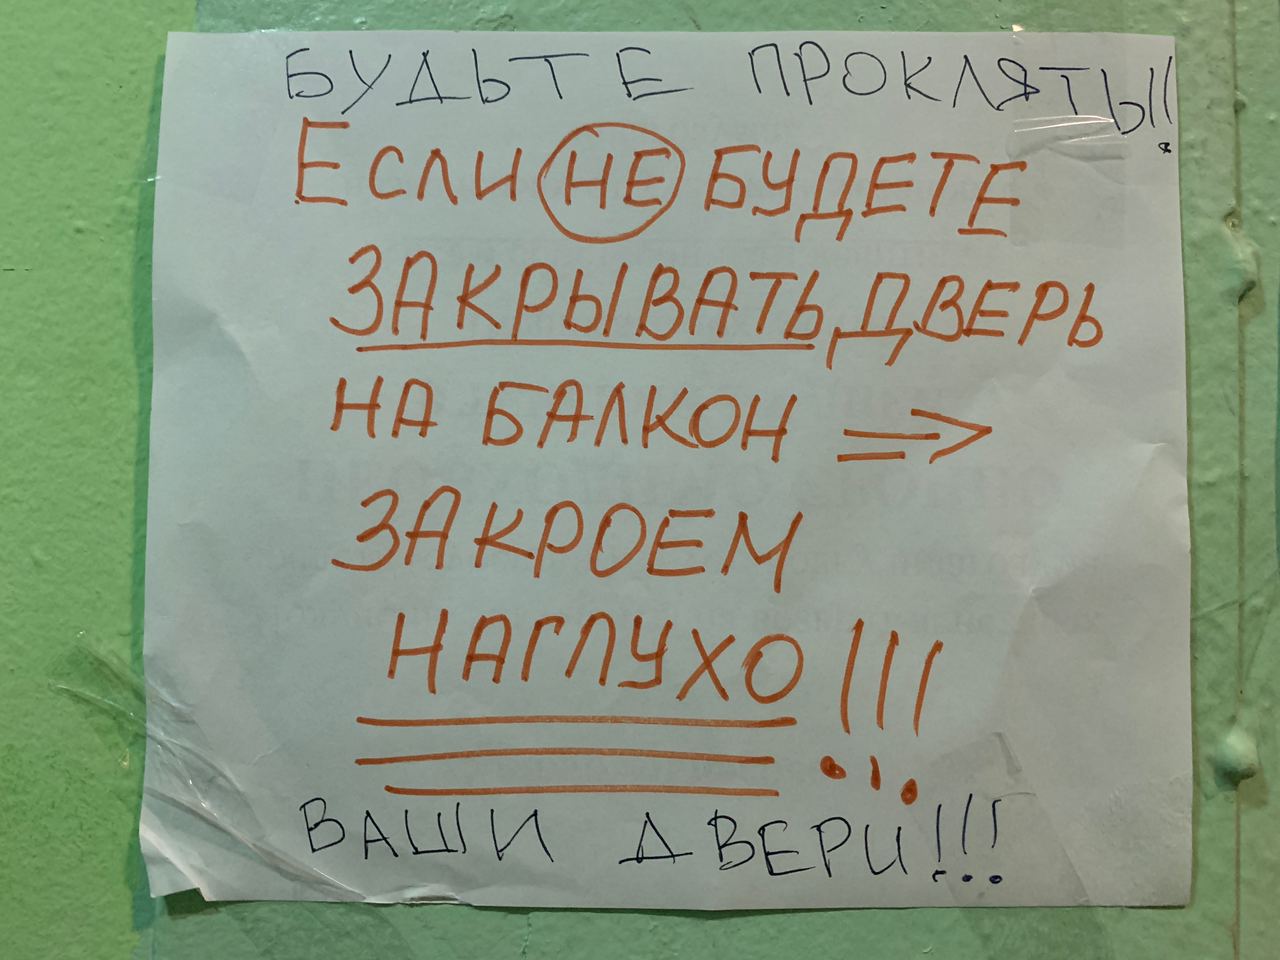 БУДЬТЕ ПРОКЛЯТЫ!!
ЕСЛИ НЕ БУДЕТЕ
ЗАКРЫВАТЬ ДВЕРЬ
НА БАЛКОН =>
ЗАКРОЕМ
НАГЛУХО!!!
ВАШИ ДВЕРИ!!!